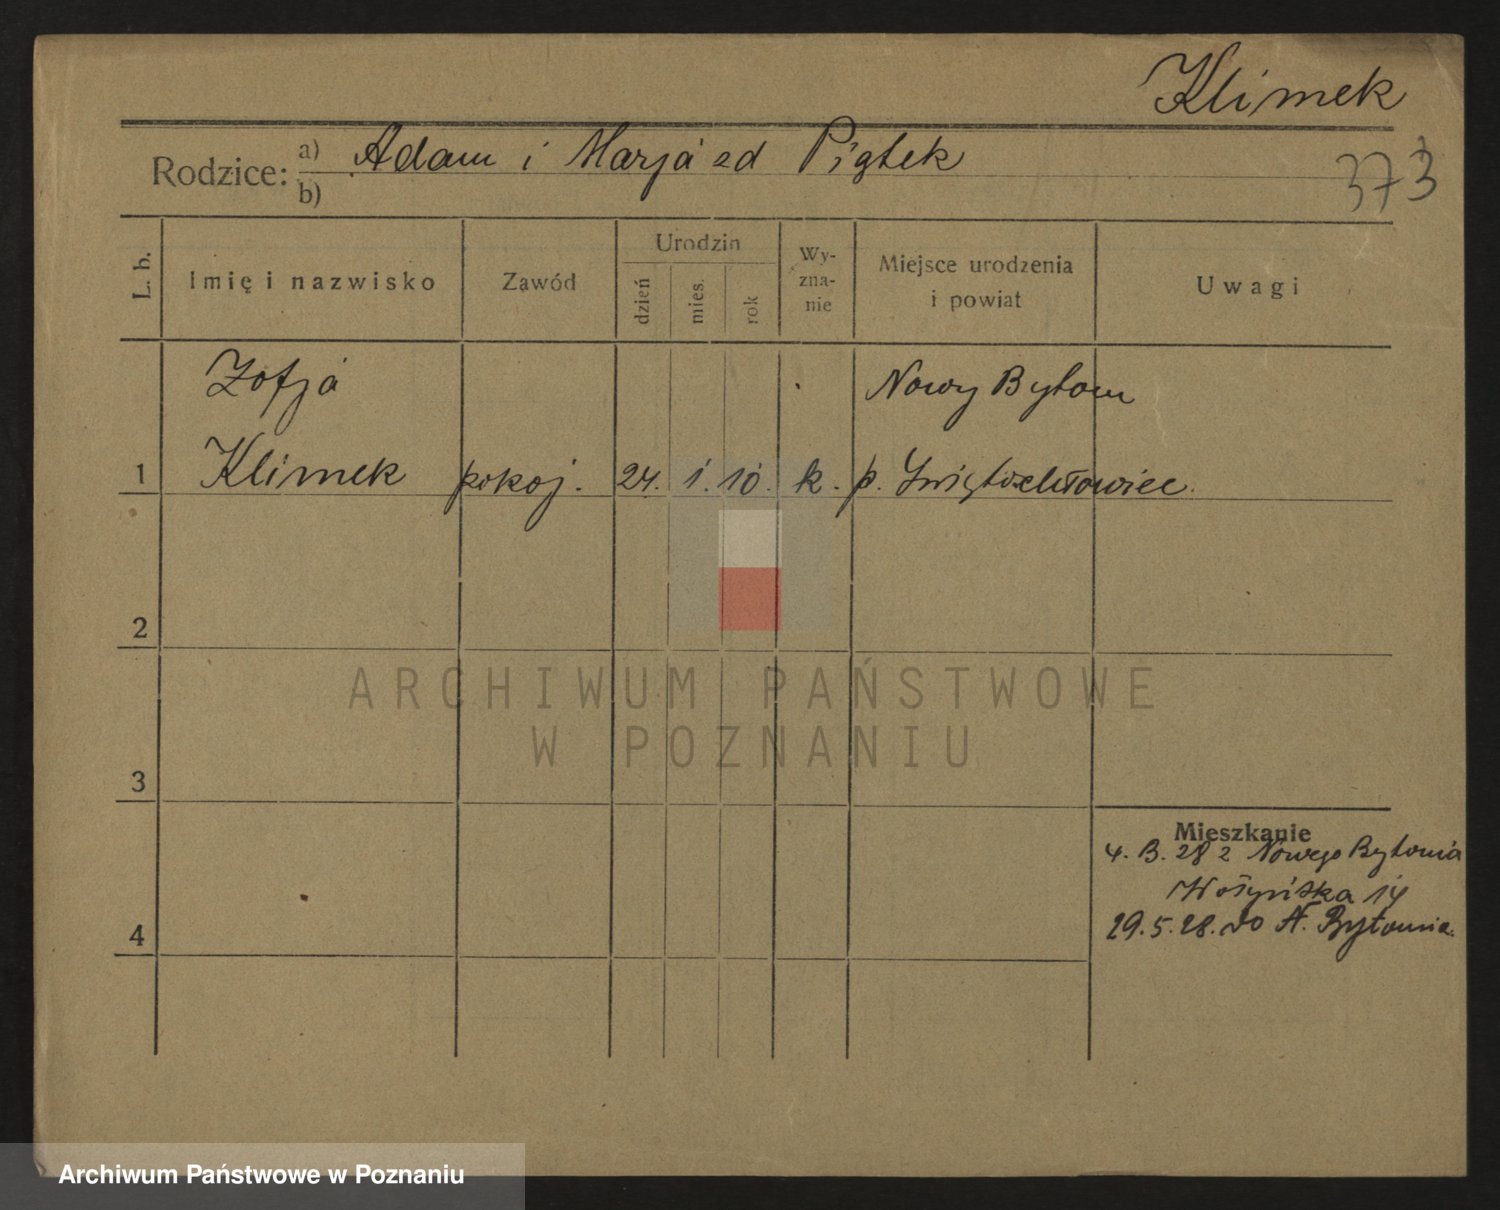 Klimek
Rodzice: a) Adam i Marja zd Piątek
b)
373
L. b.
Imię i nazwisko
Zawód
Urodzin
dzień
mies.
rok
Wy-
zna-
nie
Miejsce urodzenia
i powiat
Uwagi
Zofja
Nowy Bytom
1 Klimek pokoj. 24. 1. 10. k. p. Świętochłowice.
2
3
4
Mieszkanie
4. B. 28 z Nowego Bytomia
19.5.28. do N. Bytomia.
ARCHIWUM PAŃSTWOWE
W POZNANIU
Archiwum Państwowe w Poznaniu